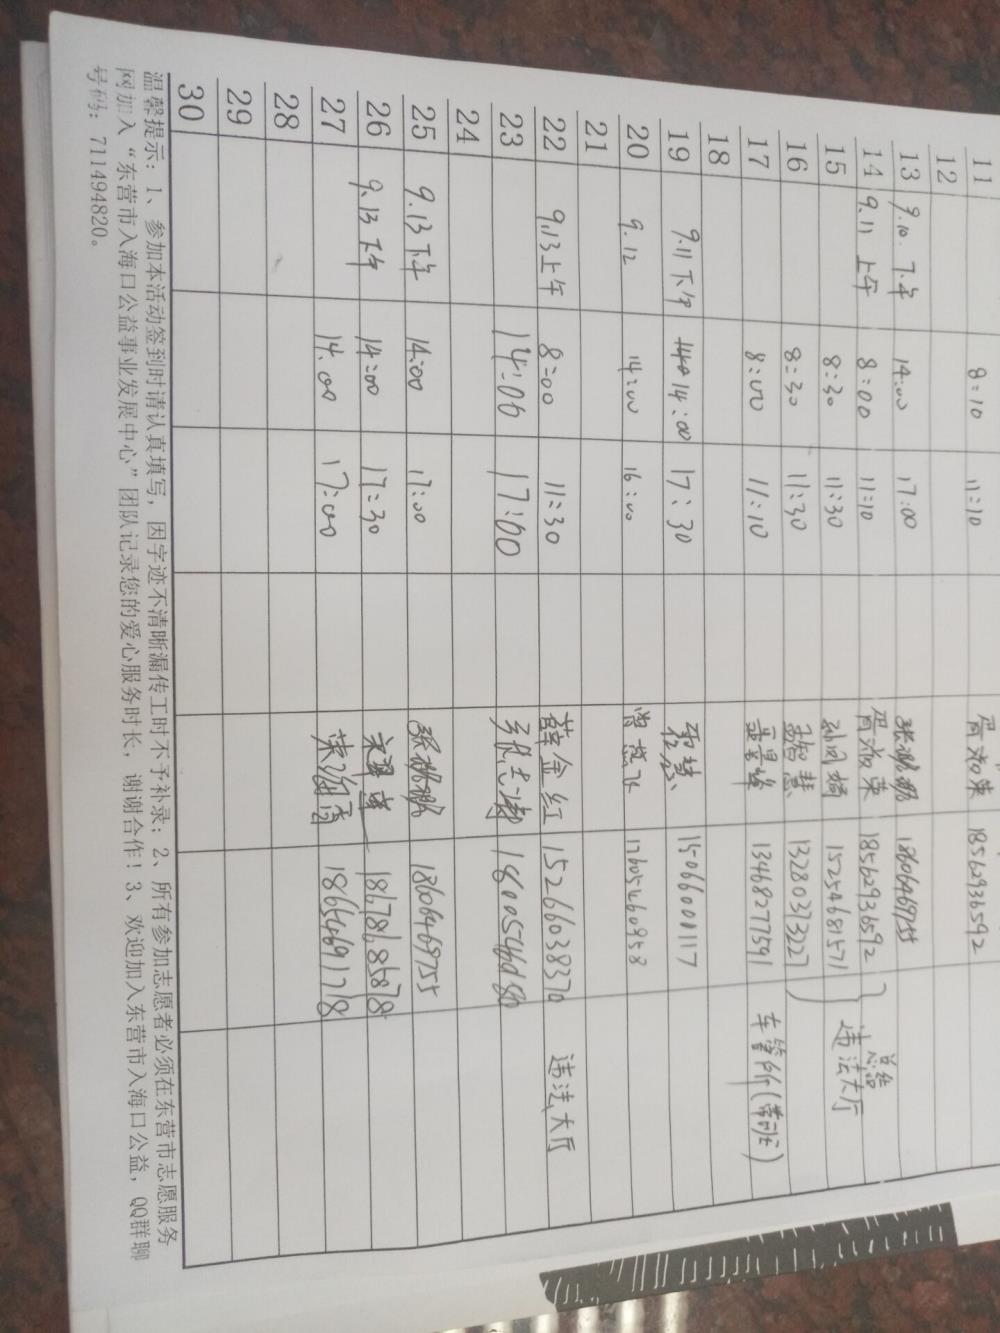 11 8:10 11:10 胥海荣 18562936592
12
13 9.10.下午 14:00 17:00 张鹏鹏 18606469755
14 9.11 上午 8:00 11:10 胥海荣 18562936592
15 8:30 11:30 15254681571 违法大厅
16 8:30 11:30 智慧 13280373227
17 8:00 11:10 13468277591 车管所(带班)
18
19 9.11下午 14:00 17:30 程慧 15066000117
20 9.12 14:00 16:00 曾燕飞 17605460958
21
22 9.13上午 8:00 11:30 薛金红 15266038370 违法大厅
23 14:00 17:00 张志涛
24
25 9.13下午 14:00 17:00 张鹏鹏 18606469755
26 9.13下午 14:00 17:30 18678685878
27 14:00 17:00 18654691718
28
29
30
温馨提示：1、参加本活动签到时请认真填写，因字迹不清晰漏传工时不予补录；2、所有参加志愿者必须在东营市志愿服务
网加入“东营市入海口公益事业发展中心”团队记录您的爱心服务时长，谢谢合作！3、欢迎加入东营市入海口公益，QQ群聊
号码：711494820。